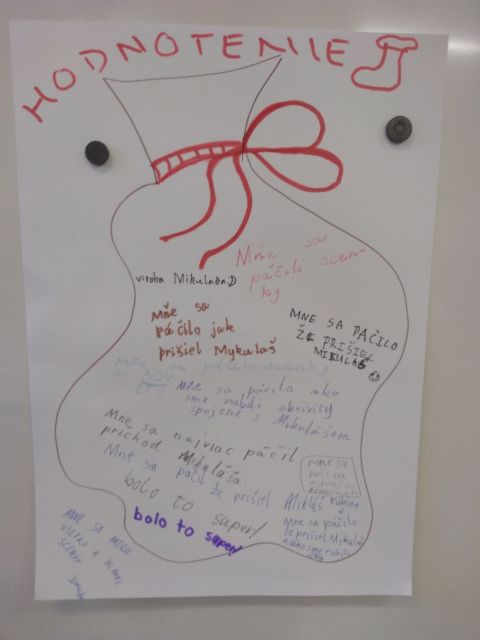 HODNOTENIE
Mňe sa
páčili scen-
ky
viroba Mikulaša:D
Mňe sa
páčilo jak
prišiel Mykulaš
MNE SA PAČILO
ŽE PRIŠIEL
MIKULAŠ
Mňe sa páčili scenky
Mňe sa páčilo ako
sme robili aktivity
spojené s Mikulášom
Mne sa najviac páčil
príchod Mikuláša.
Mne sa páčil že prišiel Mikláš
bolo to super!
bolo to super!
MNE SA
Mne sa páčilo
že prišiel Mikuláš
a ako sme robili
MNE SA
VŠETKO A HLAVNE
SCENKY